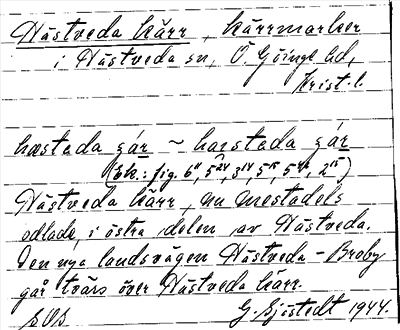 Hästveda kärr, kärrmarker
i Hästveda sn, Ö. Göinge hd,
Krist. l.
hæsteda çár ~ hæsteda çár
(Ek.: fig. 6¹¹, 5²⁴, 3¹⁴, 5¹⁵, 2¹⁵)
Hästveda kärr, nu mestadels
odlade, i östra delen av Hästveda.
Den nya landsvägen Hästveda - Broby
går tvärs över Hästveda kärr.
G. Sjöstedt 1944.